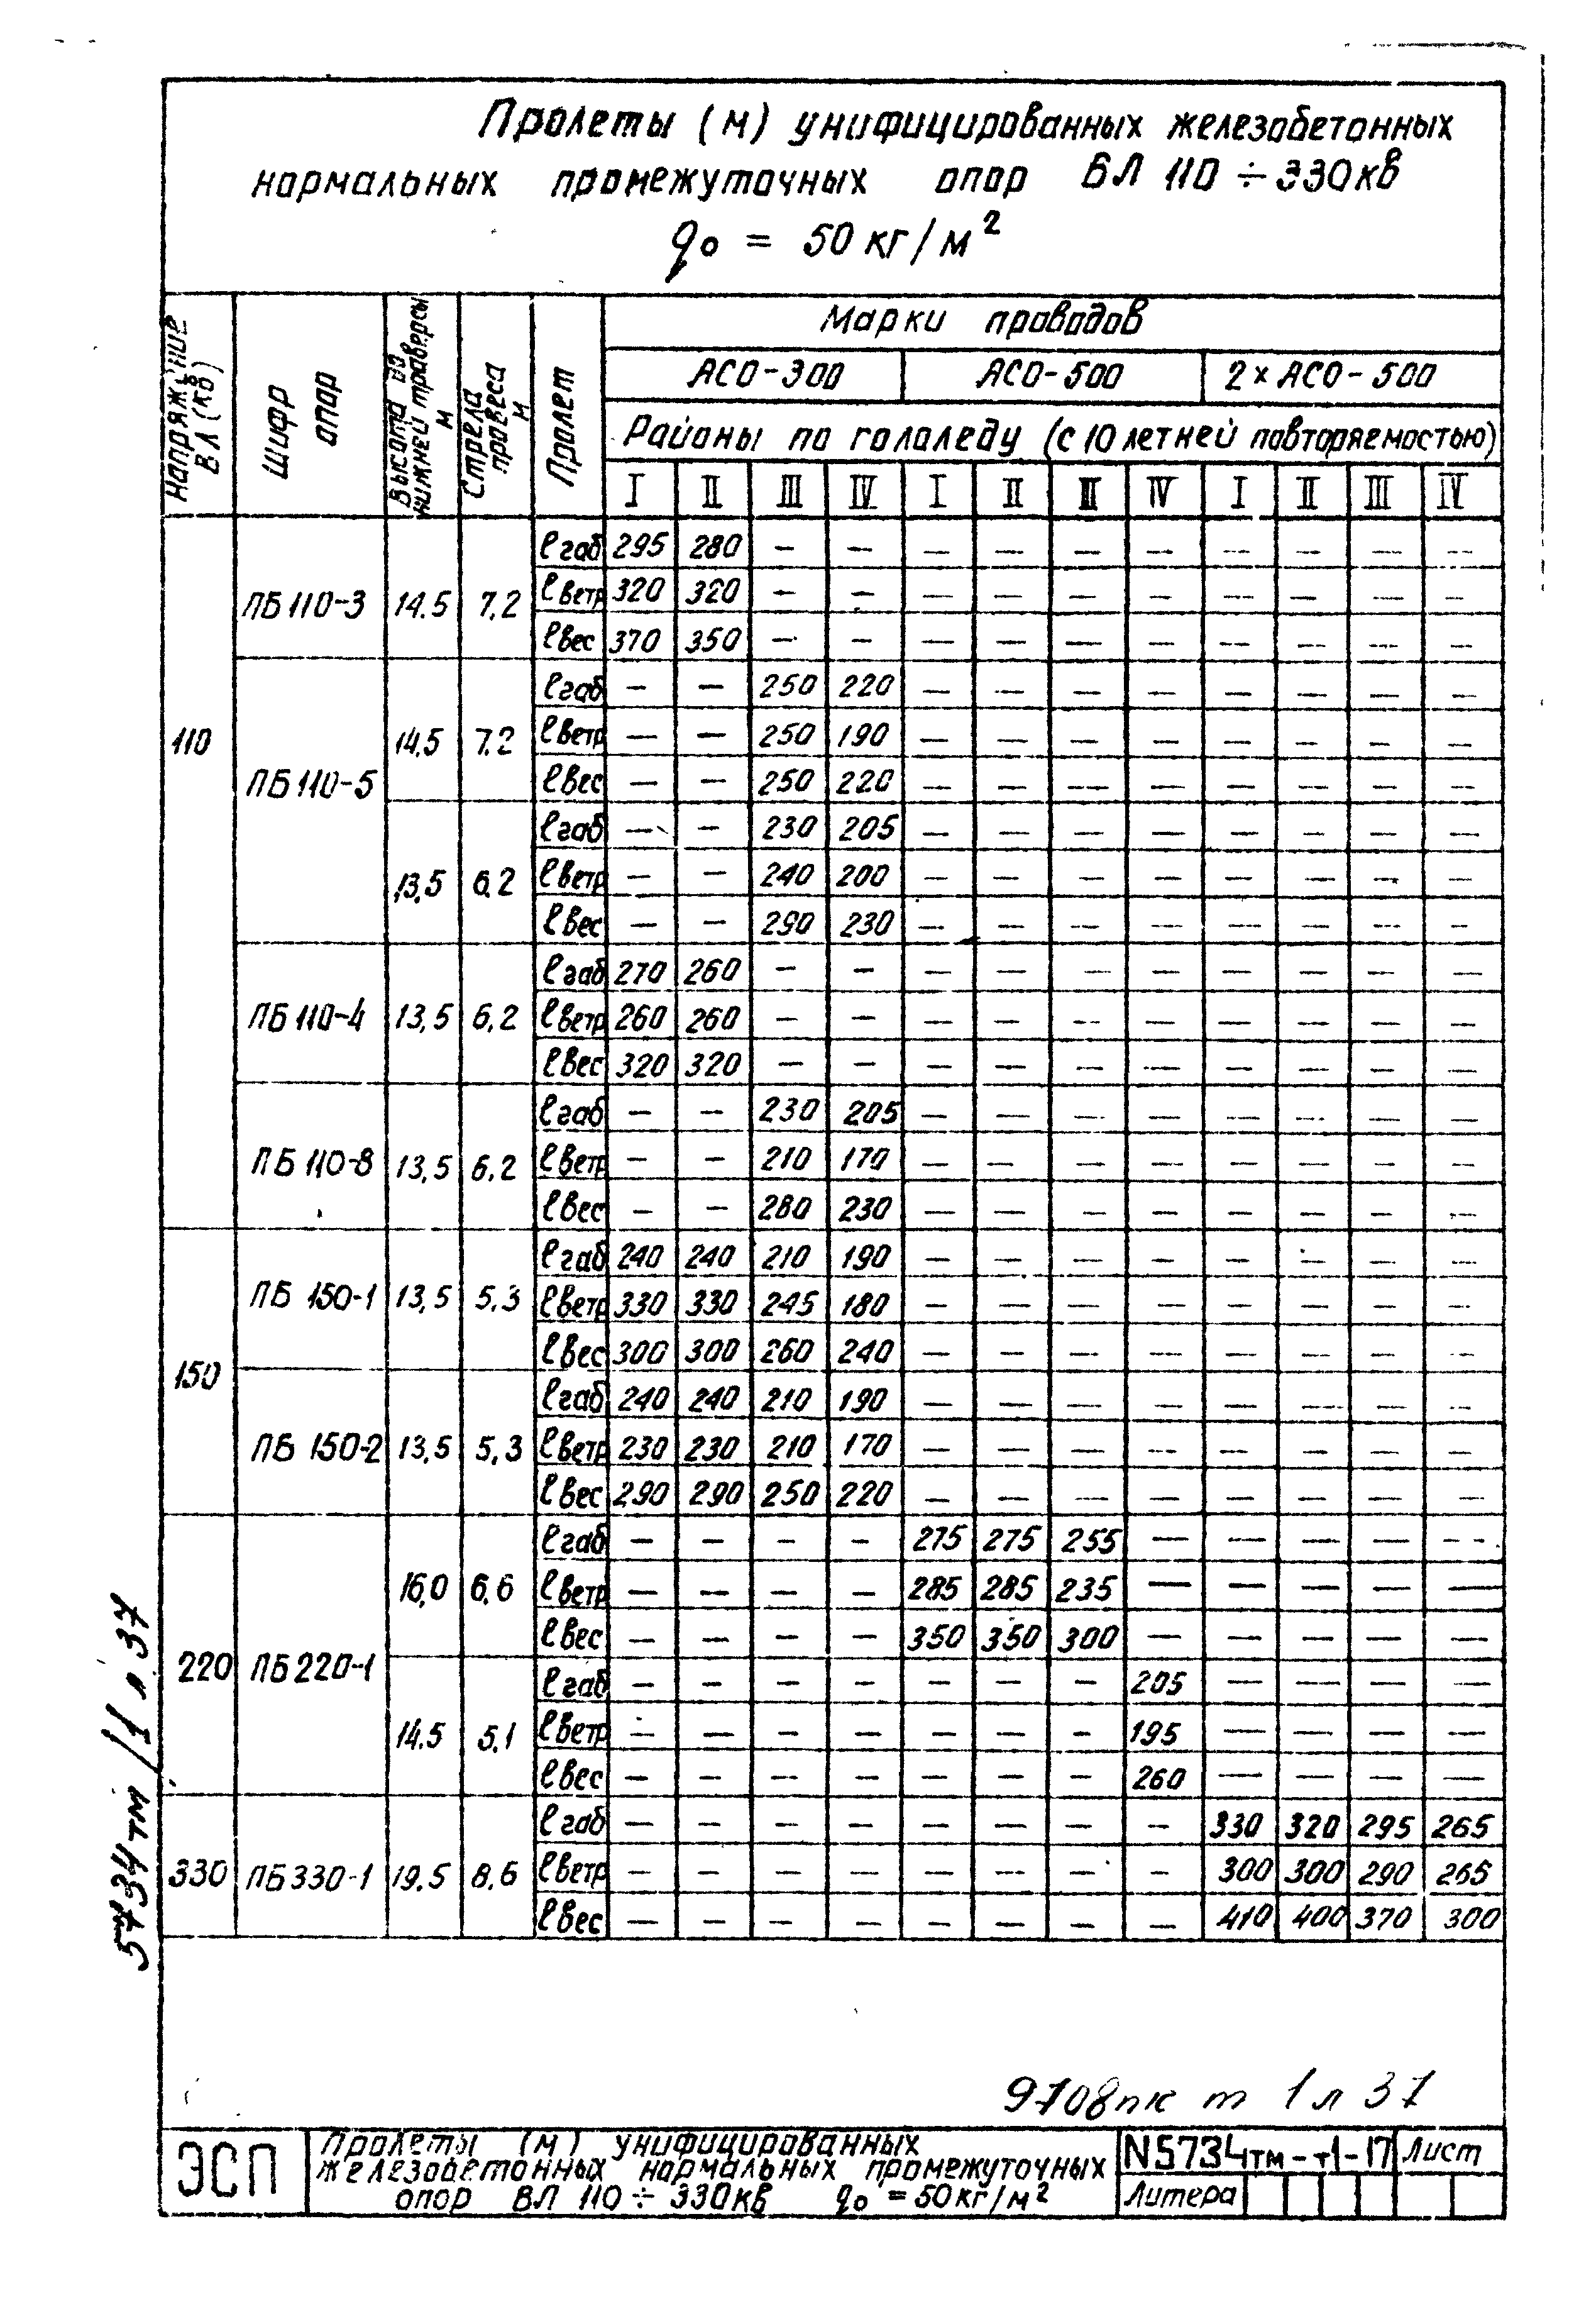 Пролеты (м) унифицированных железобетонных
нормальных промежуточных опор ВЛ 110 ÷ 330 кв
q₀ = 50 кг/м²
Напряжение ВЛ (кв) | Шифр опор | Высота до нижней траверсы м | Стрела провеса м | Пролет | Марки проводов
АСО-300 | АСО-500 | 2 × АСО-500
Районы по гололеду (с 10 летней повторяемостью)
I | II | III | IV | I | II | III | IV | I | II | III | IV
110 | ПБ 110-3 | 14.5 | 7.2 | ℓ габ | 295 | 280 | — | — | — | — | — | — | — | — | — | —
ℓ ветр | 320 | 320 | — | — | — | — | — | — | — | — | — | —
ℓ вес | 370 | 350 | — | — | — | — | — | — | — | — | — | —
ПБ 110-5 | 14.5 | 7.2 | ℓ габ | — | — | 250 | 220 | — | — | — | — | — | — | — | —
ℓ ветр | — | — | 250 | 190 | — | — | — | — | — | — | — | —
ℓ вес | — | — | 250 | 220 | — | — | — | — | — | — | — | —
13,5 | 6.2 | ℓ габ | — | — | 230 | 205 | — | — | — | — | — | — | — | —
ℓ ветр | — | — | 240 | 200 | — | — | — | — | — | — | — | —
ℓ вес | — | — | 290 | 230 | — | — | — | — | — | — | — | —
ПБ 110-4 | 13,5 | 6,2 | ℓ габ | 270 | 260 | — | — | — | — | — | — | — | — | — | —
ℓ ветр | 260 | 260 | — | — | — | — | — | — | — | — | — | —
ℓ вес | 320 | 320 | — | — | — | — | — | — | — | — | — | —
ПБ 110-8 | 13,5 | 6,2 | ℓ габ | — | — | 230 | 205 | — | — | — | — | — | — | — | —
ℓ ветр | — | — | 210 | 170 | — | — | — | — | — | — | — | —
ℓ вес | — | — | 280 | 230 | — | — | — | — | — | — | — | —
150 | ПБ 150-1 | 13,5 | 5,3 | ℓ габ | 240 | 240 | 210 | 190 | — | — | — | — | — | — | — | —
ℓ ветр | 330 | 330 | 245 | 180 | — | — | — | — | — | — | — | —
ℓ вес | 300 | 300 | 260 | 240 | — | — | — | — | — | — | — | —
ПБ 150-2 | 13,5 | 5,3 | ℓ габ | 240 | 240 | 210 | 190 | — | — | — | — | — | — | — | —
ℓ ветр | 230 | 230 | 210 | 170 | — | — | — | — | — | — | — | —
ℓ вес | 290 | 290 | 250 | 220 | — | — | — | — | — | — | — | —
220 | ПБ 220-1 | 16,0 | 6,6 | ℓ габ | — | — | — | — | 275 | 275 | 255 | — | — | — | — | —
ℓ ветр | — | — | — | — | 285 | 285 | 235 | — | — | — | — | —
ℓ вес | — | — | — | — | 350 | 350 | 300 | — | — | — | — | —
14.5 | 5,1 | ℓ габ | — | — | — | — | — | — | — | 205 | — | — | — | —
ℓ ветр | — | — | — | — | — | — | — | 195 | — | — | — | —
ℓ вес | — | — | — | — | — | — | — | 260 | — | — | — | —
330 | ПБ 330-1 | 19.5 | 8,6 | ℓ габ | — | — | — | — | — | — | — | — | 330 | 320 | 295 | 265
ℓ ветр | — | — | — | — | — | — | — | — | 300 | 300 | 290 | 265
ℓ вес | — | — | — | — | — | — | — | — | 410 | 400 | 370 | 300
5734тм/1 л 37
9708пк т 1 л 37
ЭСП
Пролеты (м) унифицированных
железобетонных нормальных промежуточных
опор ВЛ 110 ÷ 330кв q₀ = 50кг/м²
N5734тм-т1-17 | Лист
Литера